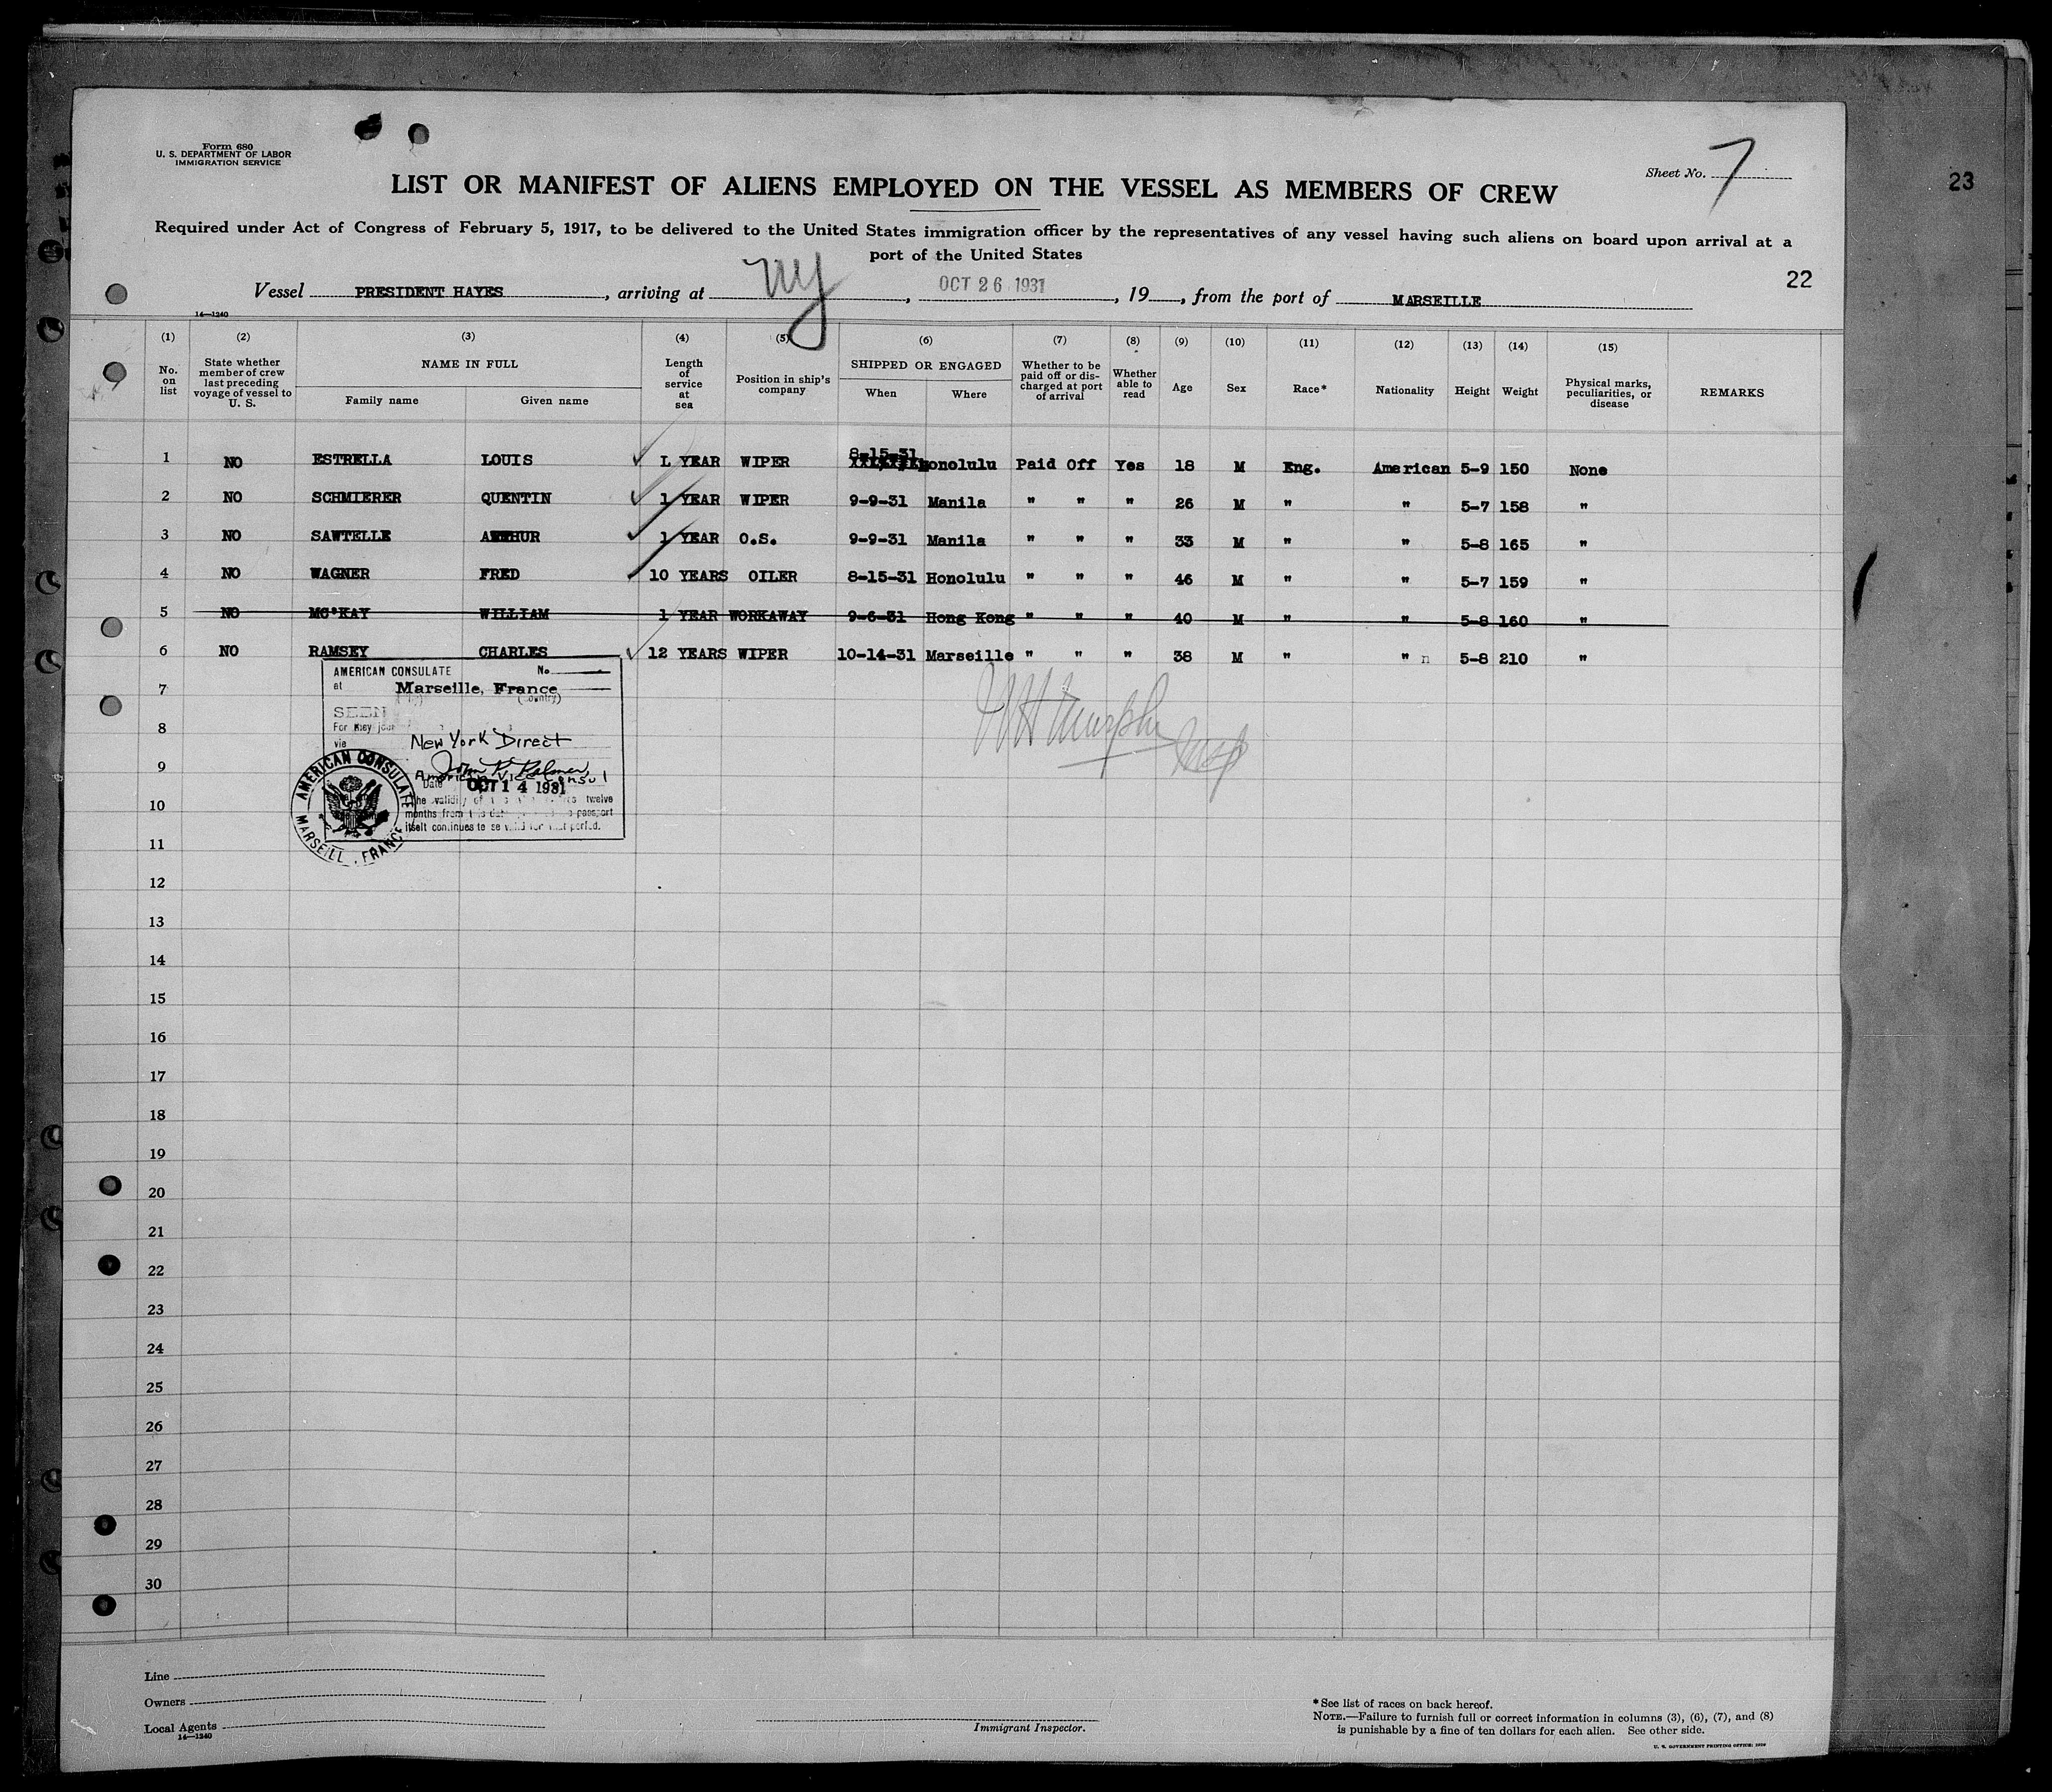 Form 680
U. S. DEPARTMENT OF LABOR
IMMIGRATION SERVICE
Sheet No. 7
23
LIST OR MANIFEST OF ALIENS EMPLOYED ON THE VESSEL AS MEMBERS OF CREW
Required under Act of Congress of February 5, 1917, to be delivered to the United States immigration officer by the representatives of any vessel having such aliens on board upon arrival at a
port of the United States
22
Vessel PRESIDENT HAYES, arriving at NY, OCT 26 1931, 19, from the port of MARSEILLE
14—1240
(1) (2) (3) (4) (5) (6) (7) (8) (9) (10) (11) (12) (13) (14) (15)
No. on list
State whether member of crew last preceding voyage of vessel to U. S.
NAME IN FULL
Family name
Given name
Length of service at sea
Position in ship's company
SHIPPED OR ENGAGED
When
Where
Whether to be paid off or discharged at port of arrival
Whether able to read
Age
Sex
Race*
Nationality
Height
Weight
Physical marks, peculiarities, or disease
REMARKS
1 NO ESTRELLA LOUIS L YEAR WIPER 8-15-31 Honolulu Paid Off Yes 18 M Eng. American 5-9 150 None
2 NO SCHMIERER QUENTIN 1 YEAR WIPER 9-9-31 Manila " " " 26 M " " 5-7 158 "
3 NO SAWTELLE ARTHUR 1 YEAR O.S. 9-9-31 Manila " " " 33 M " " 5-8 165 "
4 NO WAGNER FRED 10 YEARS OILER 8-15-31 Honolulu " " " 46 M " " 5-7 159 "
5 NO MC'KAY WILLIAM 1 YEAR WORKAWAY 9-6-31 Hong Kong " " " 40 M " " 5-8 160 "
6 NO RAMSEY CHARLES 12 YEARS WIPER 10-14-31 Marseille " " " 38 M " " n 5-8 210 "
AMERICAN CONSULATE No.
at Marseille, France
(country)
SEEN
For
via New York Direct
John P. Palmer
American Vice Consul
Date OCT 14 1931
The validity of twelve
months from passport
itself continues to period.
AMERICAN CONSULATE
MARSEILL , FRANCE
W H Murphy
7
8
9
10
11
12
13
14
15
16
17
18
19
20
21
22
23
24
25
26
27
28
29
30
Line
Owners
Local Agents
14—1240
Immigrant Inspector.
* See list of races on back hereof.
NOTE.—Failure to furnish full or correct information in columns (3), (6), (7), and (8)
is punishable by a fine of ten dollars for each alien. See other side.
U. S. GOVERNMENT PRINTING OFFICE: